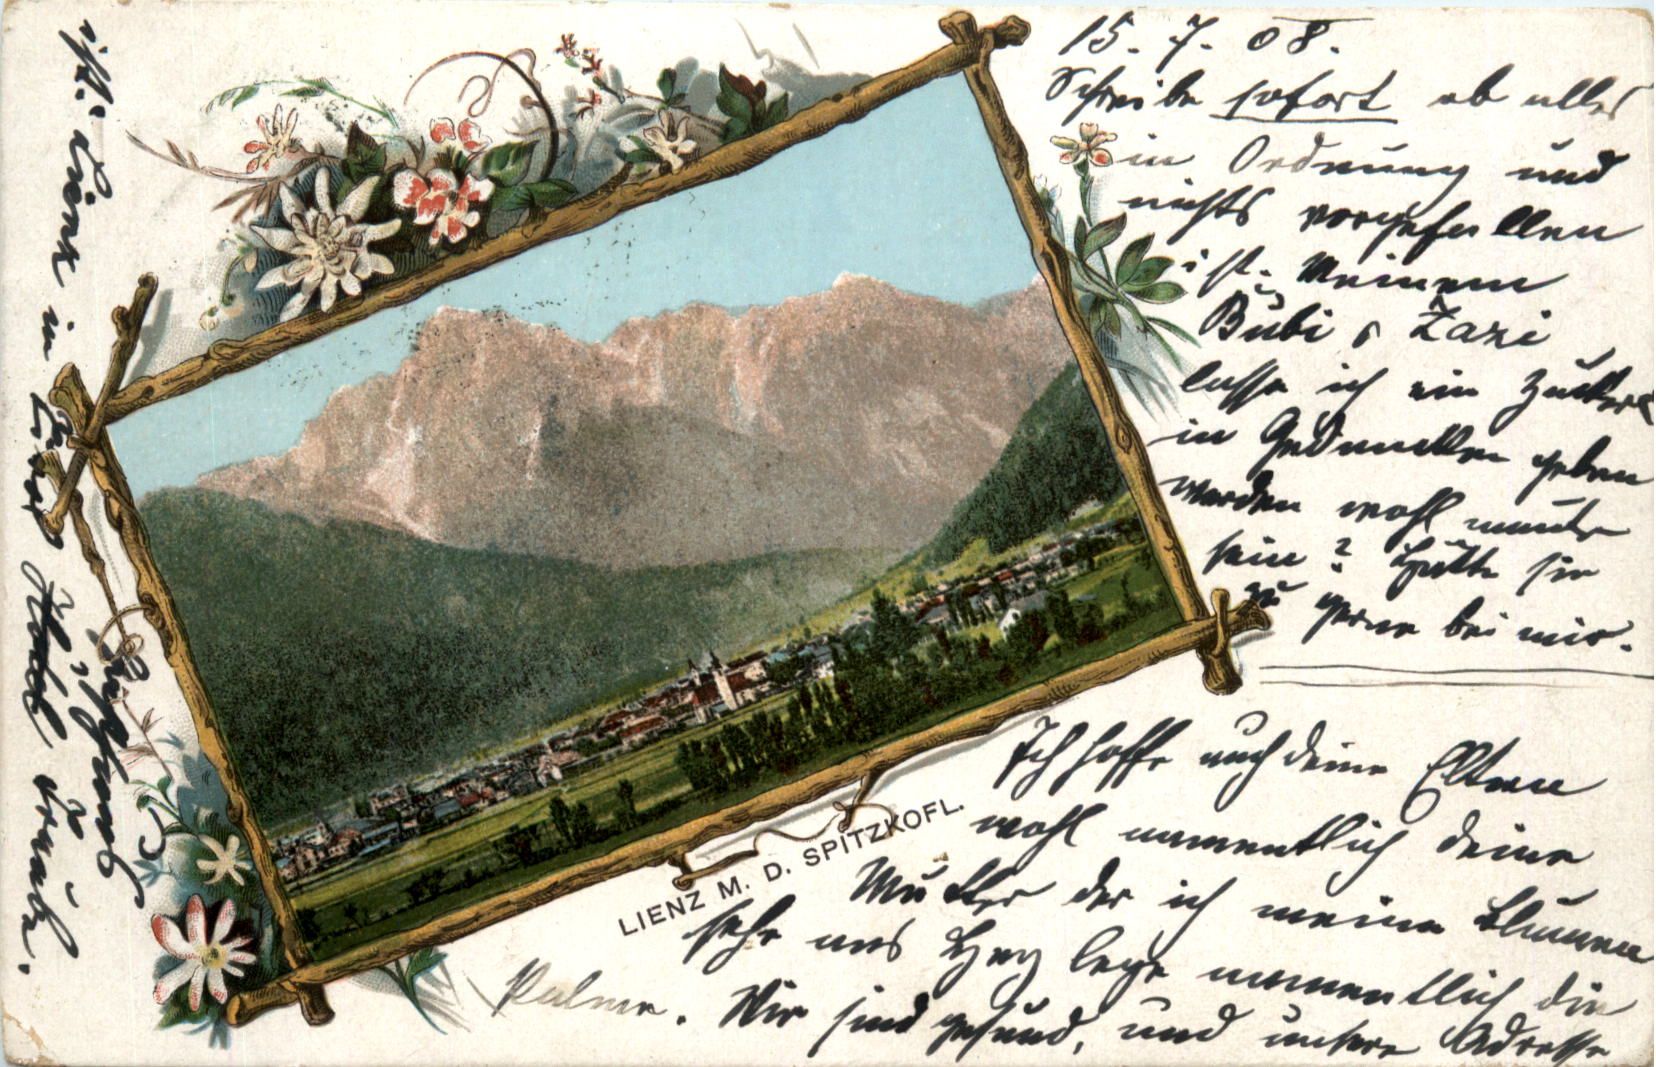 15. 7. 08.
Schreibe sofort ob alles
in Ordnung und
nichts vorgefallen
ist. Meinem
Bubi & Zazi
lasse ich ein Zuckerl
in Gedanken geben
werden wohl munter
sein? Hätte sie
zu gerne bei mir.
Ich hoffe auch deine Eltern
wohl namentlich deine
Mutter der ich meine Blumen
sehr ans Herz lege namentlich die
Palme. Wir sind gesund, und unsere Adresse
ist: Lienz in Tirol Hotel Traube.
LIENZ M. D. SPITZKOFL.